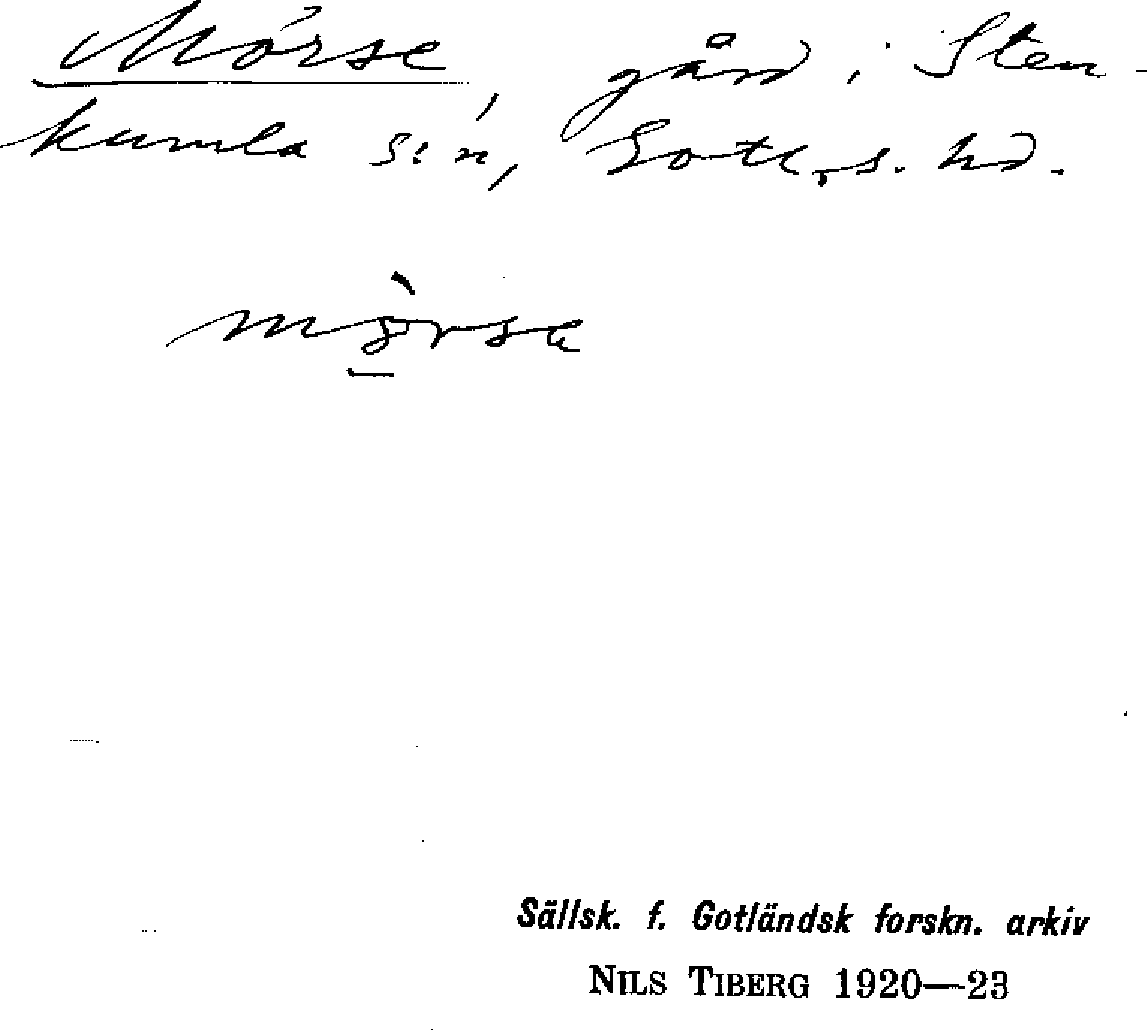 Mörse, gård i Sten-
kumla s:n, Gotl. s. hd.
Sällsk. f. Gotländsk forskn. arkiv
NILS TIBERG 1920—23